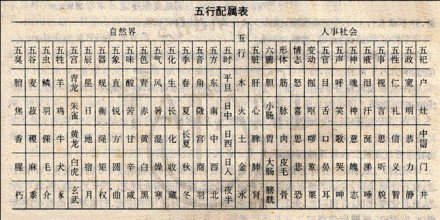 五行配属表
自然界 五行 人事社会
五臭 五谷 五虫 五牲 五宫 五辰 五器 五象 五味 五色 五气 五化 五季 五音 五方 五时 五脏 六腑 形体 情志 变动 五官 五声 五神 五液 五事 五性 五政 五祀
膻 麦 鳞 羊 青龙 星 规 直 酸 青 风 生 春 角 东 平旦 木 肝 胆 筋 怒 握 目 呼 魂 泪 视 仁 宽 户
焦 菽 羽 鸡 朱雀 日 衡 锐 苦 赤 暑 长 夏 徵 南 日中 火 心 小肠 脉 喜 舌 笑 神 汗 言 礼 明 灶
香 稷 倮 牛 黄龙 地 绳 方 甘 黄 湿 化 长夏 宫 中 日西 土 脾 胃 肉 思 哕 口 歌 意 涎 思 信 恭 中霤
腥 麻 毛 犬 白虎 宿 矩 圆 辛 白 燥 收 秋 商 西 日入 金 肺 大肠 皮毛 悲 咳 鼻 哭 魄 涕 听 义 力 门
朽 黍 介 彘 玄武 月 权 曲 咸 黑 寒 藏 冬 羽 北 夜半 水 肾 膀胱 骨 恐 栗 耳 呻 志 唾 貌 智 静 井